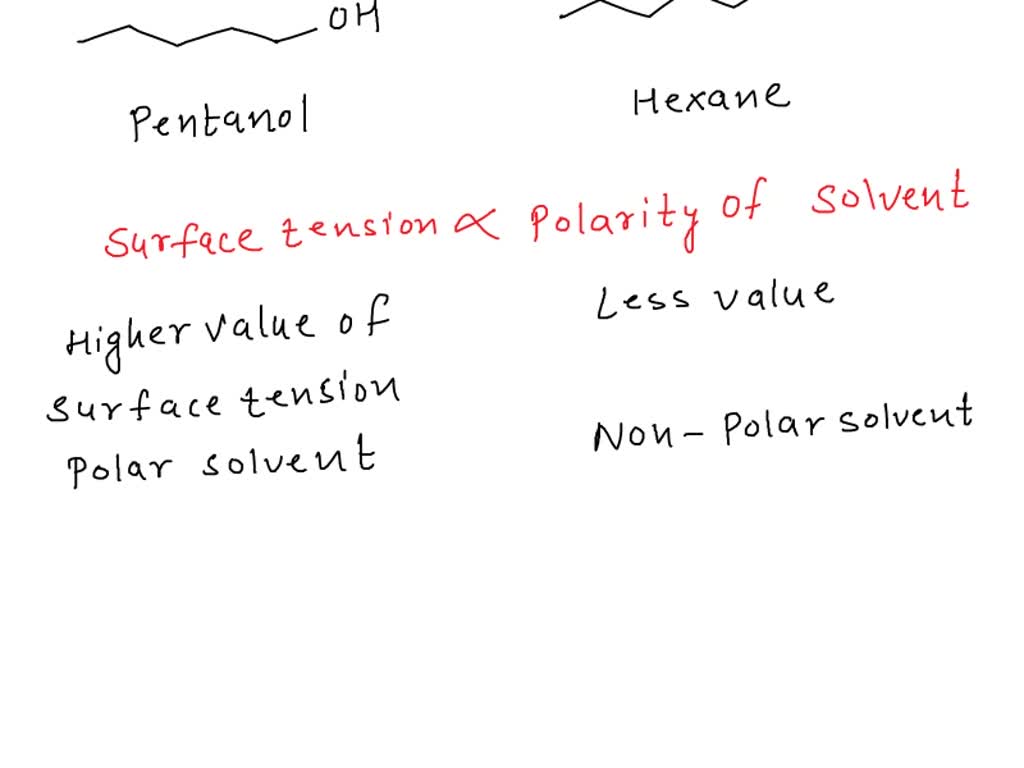 OH
Pentanol
Hexane
Surface tension ∝ Polarity of solvent
Higher value of
surface tension
Polar solvent
Less value
Non-Polar solvent